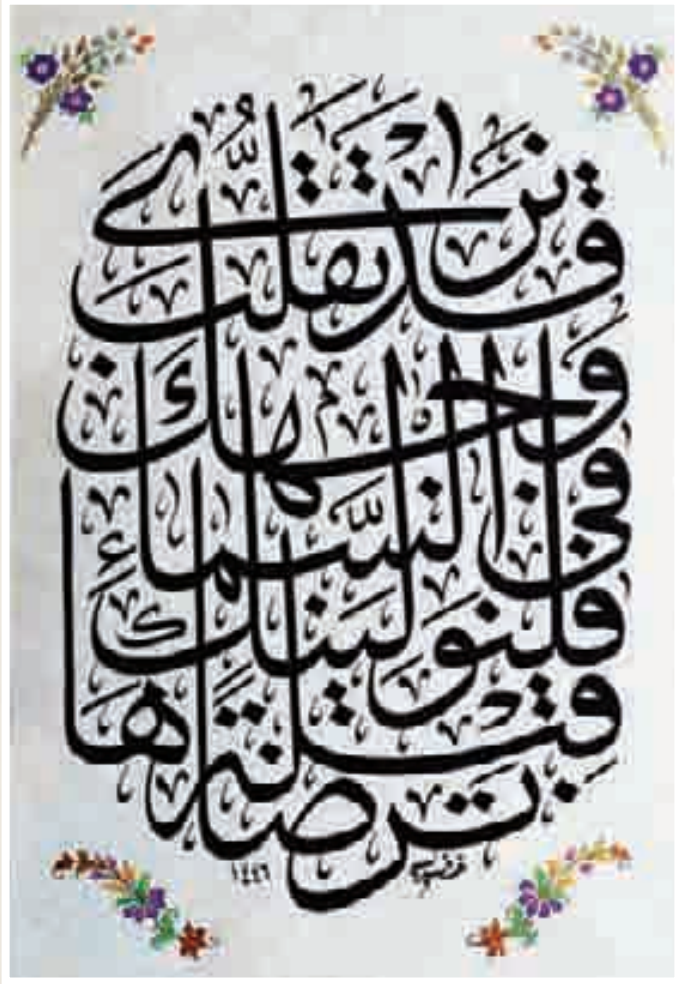 قَدْ نَرَىٰ تَقَلُّبَ
وَجْهِكَ
فِي السَّمَاءِ
فَلَنُوَلِّيَنَّكَ
قِبْلَةً
تَرْضَاهَا
١٤٤٦